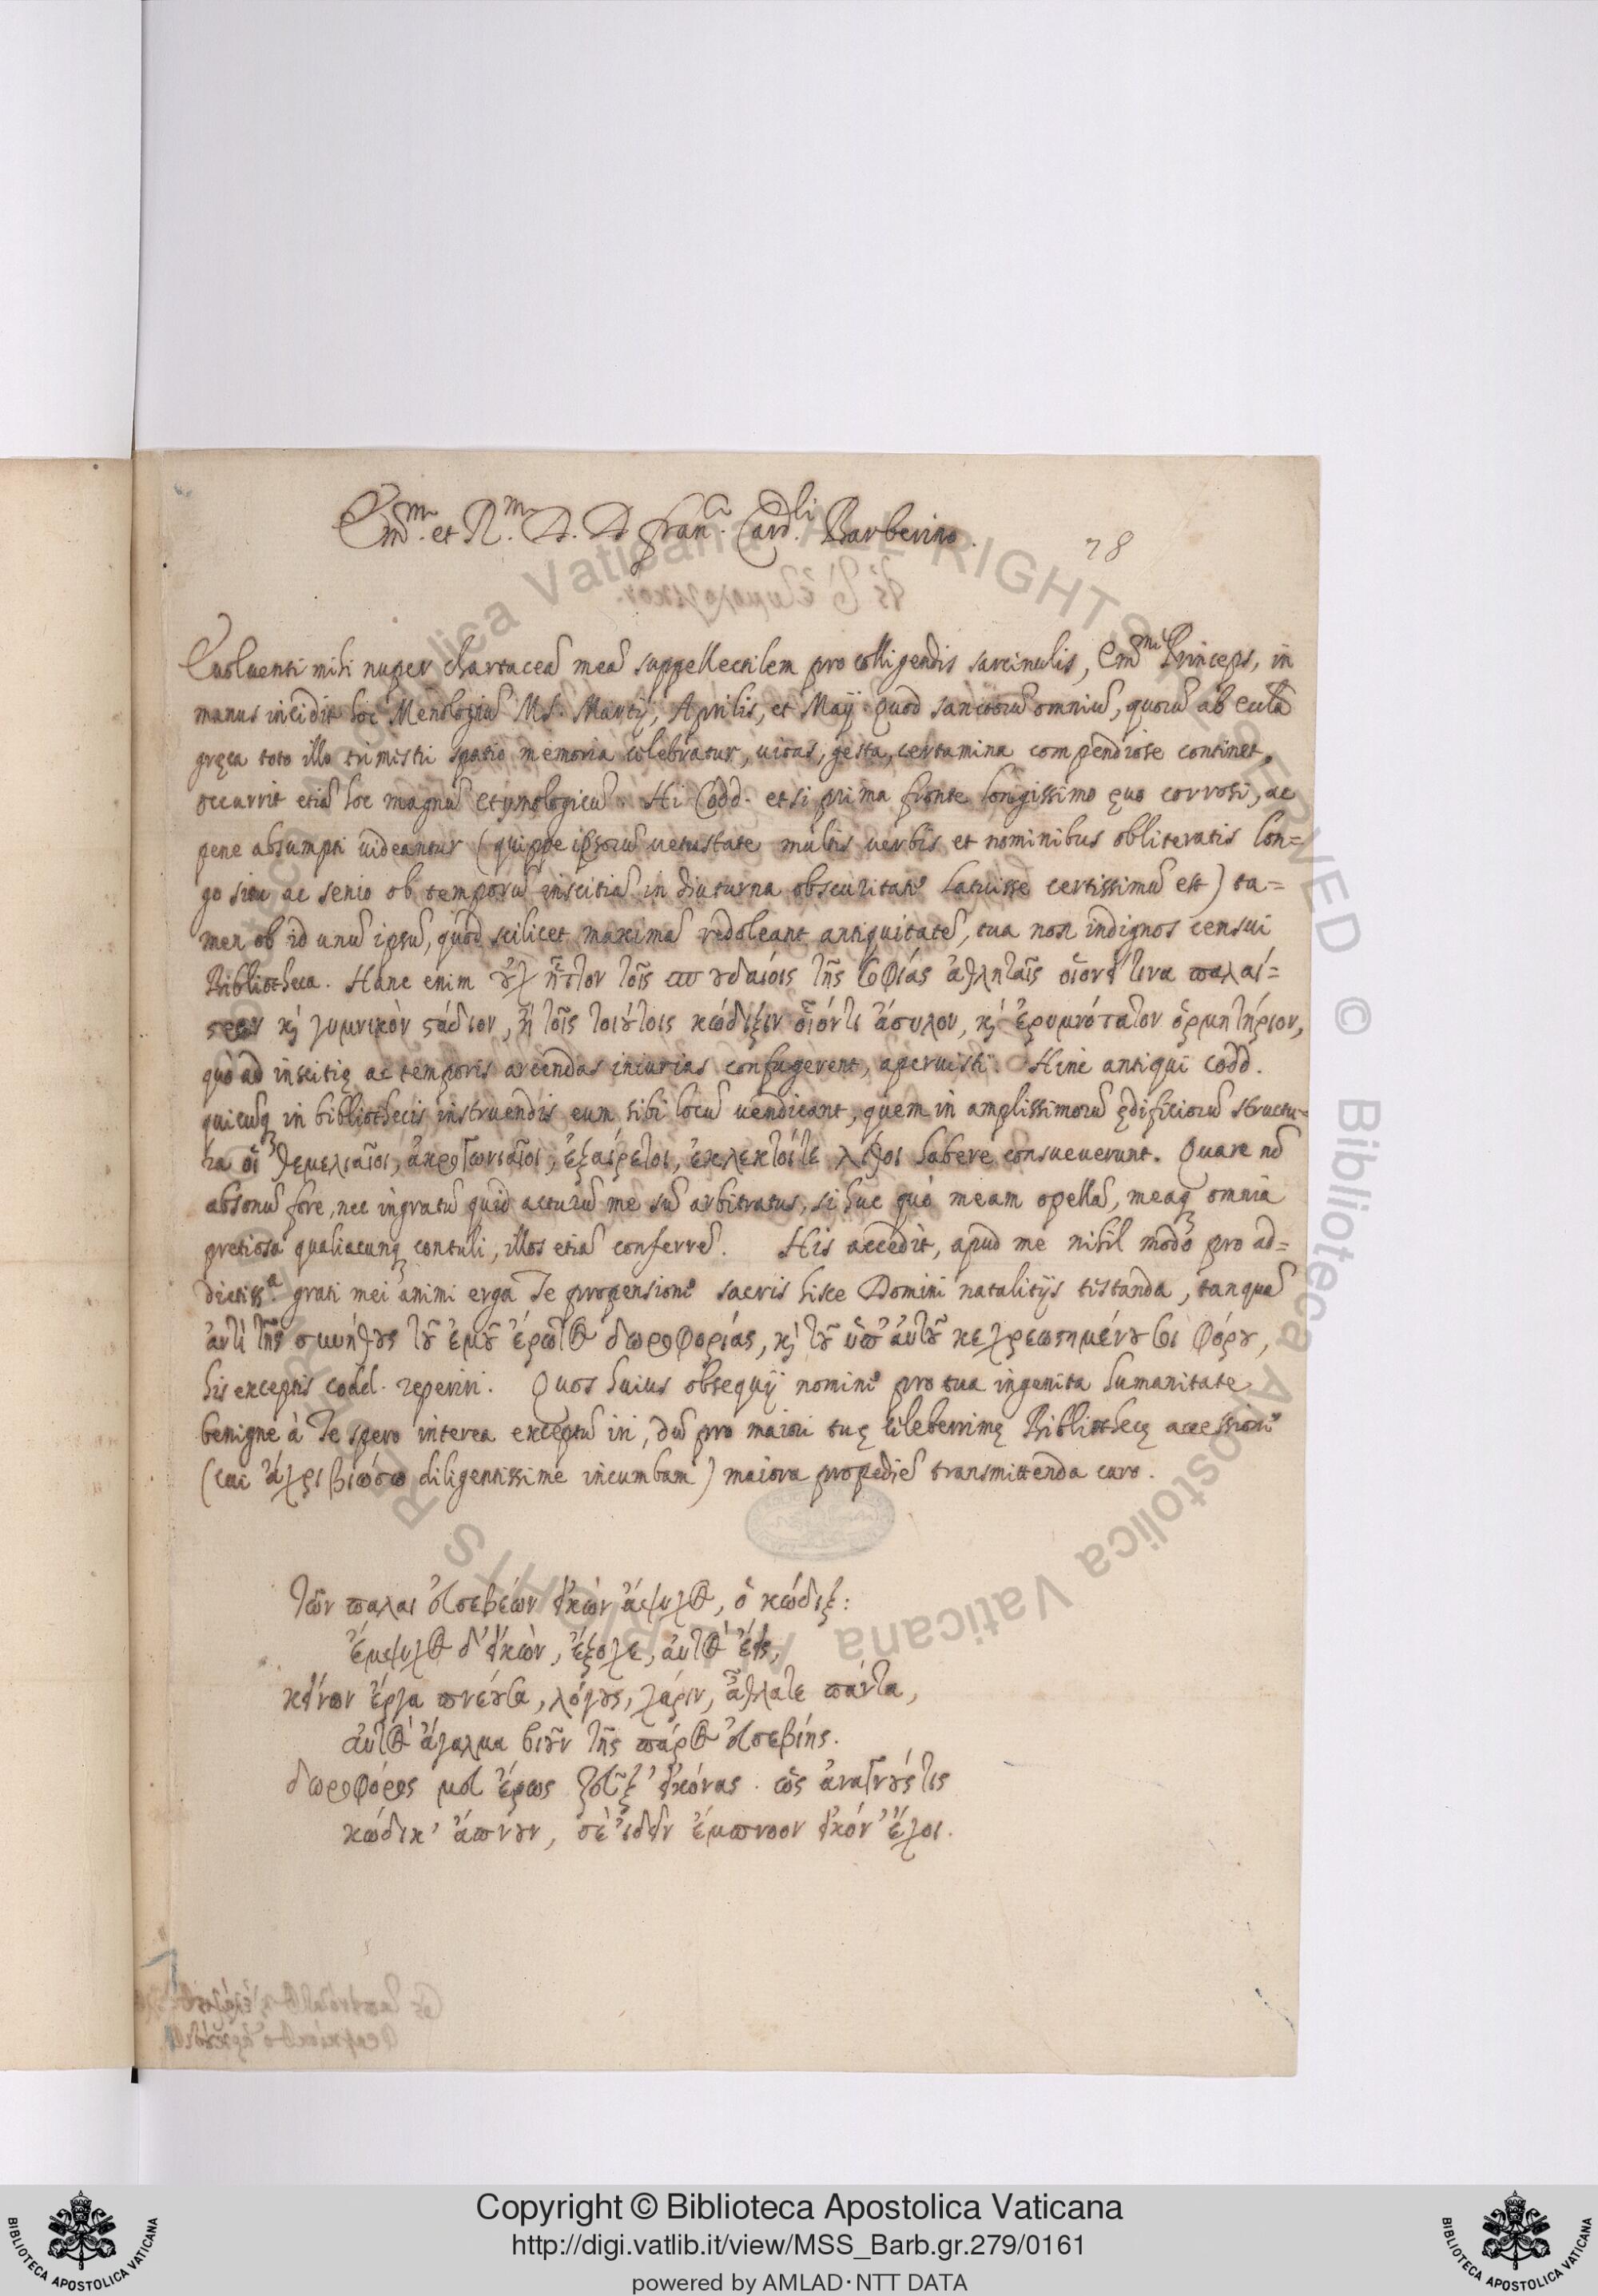 Em̃.º et R.mº D. D. Fran.º Card.li Barberino.
78
Euoluenti mihi nuper chartaceã meã suppellectilem pro colligendis sarcinulis, Em̃.me Princeps, in
manus incidit hoc Menologiũ MS. Martij, Aprilis, et Maij. Quod sanctorũ omniũ, quorũ ab eccl̃a
gręca toto illo trimistri spatio memoria celebratur, uitas, gesta, certamina compendiose continet.
occurrit etiã hoc magnũ etymologicũ. Hi Codd. etsi prima fronte longissimo ęuo corrosi, ac
pene absumpti uideantur (quippe ipsorũ uetustate multis uerbis et nominibus obliteratis lon=
go situ ac senio ob temporũ inscitiã in diuturna obscuritate latuisse certissimũ est) ta=
men ob id unũ ipsũ, quod scilicet maximã redoleant antiquitatẽ, tua non indignos censui
Bibliotheca. Hanc enim οὐχ ἧττον τοῖς σπουδαίοις τῆς σοφίας ἀθληταῖς οἷόν τινα παλαί=
στραν καὶ γυμνικὸν στάδιον, ἢ τοῖς τοιούτοις κώδιξιν οἷόντι ἄσυλον, καὶ ἐρυμνότατον ὁρμητήριον,
quò ad inscitię ac temporis arcendas iniurias confugerent, aperuisti. Hinc antiqui codd.
quicunq; in bibliothecis instruendis eum sibi locũ uendicant, quem in amplissimorũ ędificiorũ structu=
ra οἱ θεμελιαῖοι, ἀκρογωνιαῖοι, ἐξαίρετοι, ἐκλεκτοίτε λίθοι habere consueuerunt. Quare nõ
absonũ fore, nec ingratũ quid acturũ me sũ arbitratus, si huc quò meam opellã, meaq; omnia
pretiosa qualiacunq; contuli, illos etiã conferrẽ. His accedit, apud me nihil modò pro ad=
dictiss.ª grati mei animi erga Te propensione sacris hisce Domini natalitijs testanda, tanquã
ἀντὶ τῆς συνήθους τοῦ ἐμοῦ ἔρωτος δωροφορίας, καὶ τοῦ ὑπ' αὐτοῦ κεχρεωσημένου σοι φόρου,
his exceptis codd. reperiri. Quos huius obsequij nomine pro tua ingenita humanitate
benigne à Te spero interea exceptũ iri, dũ pro maiori tuę celeberrimę Bibliothecę accessione
(cui ἄχρι βιώσω diligentissimè incumbam) maiora propediẽ transmittenda curo.
τῶν πάλαι εὐσεβέων εἰκὼν ἄψυχος, ὁ κώδιξ:
ἔμψυχος δ' εἰκὼν, ἔξοχε, αὐτὸς ἔῃς,
κείνων ἔργα πνέοντα, λόγους, χάριν, ἆθλάτε πάντα,
αὐτὸς ἄγαλμα βιοῦν τῆς πάρος εὐσεβίης.
δωροφόρος μευ ἔρως ζεῦξ' εἰκόνας. ὡς ἀναγνούς τις
κώδικ' ἄπνουν, σὲ ἰδεῖν ἔμπνοον εἰκόν' ἔχοι.
Copyright © Biblioteca Apostolica Vaticana
http://digi.vatlib.it/view/MSS_Barb.gr.279/0161
powered by AMLAD·NTT DATA